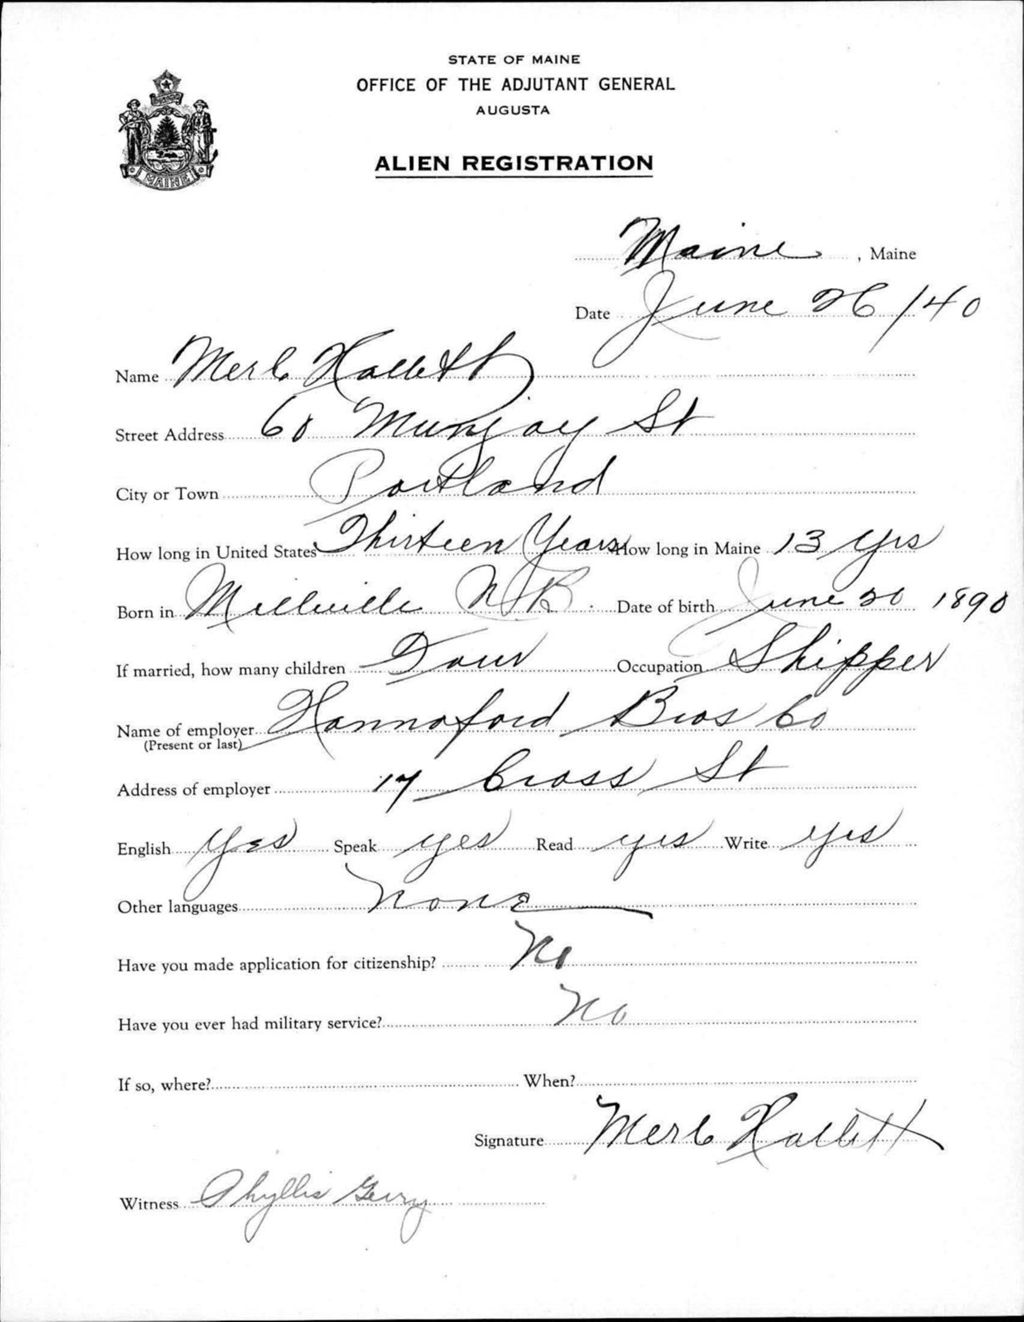 STATE OF MAINE
OFFICE OF THE ADJUTANT GENERAL
AUGUSTA
ALIEN REGISTRATION
MAINE
Maine, Maine
Date June 26/40
Name Merle Hallett
Street Address 60 Munjoy St
City or Town Portland
How long in United States Thirteen Years How long in Maine 13 yrs
Born in Millville N.B. Date of birth June 20 1890
If married, how many children Four Occupation Shipper
Name of employer Hannaford Bros Co
(Present or last)
Address of employer 17 Cross St
English Yes Speak yes Read yes Write yes
Other languages None
Have you made application for citizenship? No
Have you ever had military service? No
If so, where? When?
Signature Merle Hallett
Witness Phyllis